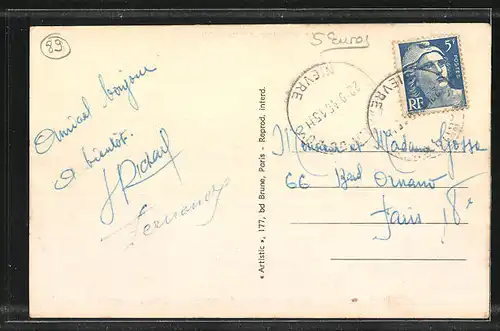 89
5 Euros
Amical bonjour
A bientôt.
J Richard
Fernande
« Artistic », 177, bd Brune, Paris - Reprod. interd.
NIEVRE
NIEVRE
5F
POSTES
RF
Monsieur et Madame Gosse
66 Bad Ornano
Paris 18e